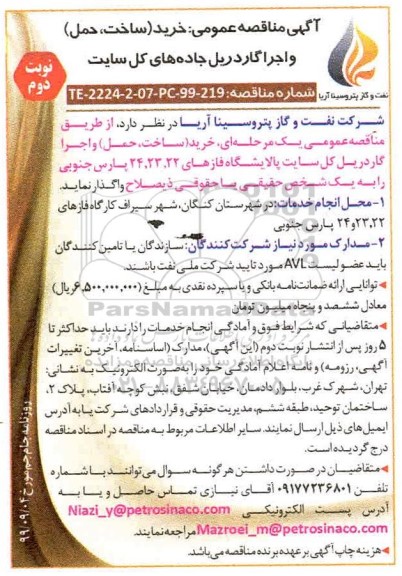 آگهی مناقصه عمومی: خرید(ساخت، حمل)
و اجرا گاردریل جاده‌های کل سایت
نوبت دوم
نفت و گاز پتروسینا آریا
شماره مناقصه: TE-2224-2-07-PC-99-219
شرکت نفت و گاز پتروسینا آریا در نظر دارد، از طریق
مناقصه عمومی یک مرحله‌ای، خرید(ساخت، حمل) و اجرا
گاردریل کل سایت پالایشگاه فازهای ۲۴،۲۳،۲۲ پارس جنوبی
را به یک شخص حقیقی یا حقوقی ذیصلاح واگذار نماید.
۱-محل انجام خدمات: در شهرستان کنگان، شهر سیراف کارگاه فازهای
۲۳،۲۲ و ۲۴ پارس جنوبی
۲-مدارک مورد نیاز شرکت کنندگان: سازندگان یا تامین کنندگان
باید عضو لیست AVL مورد تایید شرکت ملی نفت باشند.
توانایی ارائه ضمانت‌نامه بانکی و یا سپرده نقدی به مبلغ (۶,۵۰۰,۰۰۰,۰۰۰ ریال)
معادل ششصد و پنجاه میلیون تومان
متقاضیانی که شرایط فوق و آمادگی انجام خدمات را دارند باید حداکثر تا
۵ روز پس از انتشار نوبت دوم (این آگهی)، مدارک (اساسنامه، آخرین تغییرات
آگهی، رزومه) و نامه اعلام آمادگی خود را به‌صورت الکترونیک به نشانی:
تهران، شهرک غرب، بلوار دادمان، خیابان شفق، نبش کوچه آفتاب، پلاک ۲،
ساختمان توحید، طبقه ششم، مدیریت حقوقی و قراردادهای شرکت یا به آدرس
ایمیل‌های ذیل ارسال نمایند. سایر اطلاعات مربوط به مناقصه در اسناد مناقصه
درج گردیده است.
متقاضیان در صورت داشتن هرگونه سوال می‌توانند با شماره
تلفن ۰۹۱۷۷۲۳۶۸۰۱ آقای نیازی تماس حاصل و یا به
آدرس پست الکترونیکی Niazi_y@petrosinaco.com
Mazroei_m@petrosinaco.com مراجعه نمایند.
هزینه چاپ آگهی بر عهده برنده مناقصه می‌باشد.
روزنامه جام جم مورخ ۹۹/۰۹/۰۴
ParsNamadData